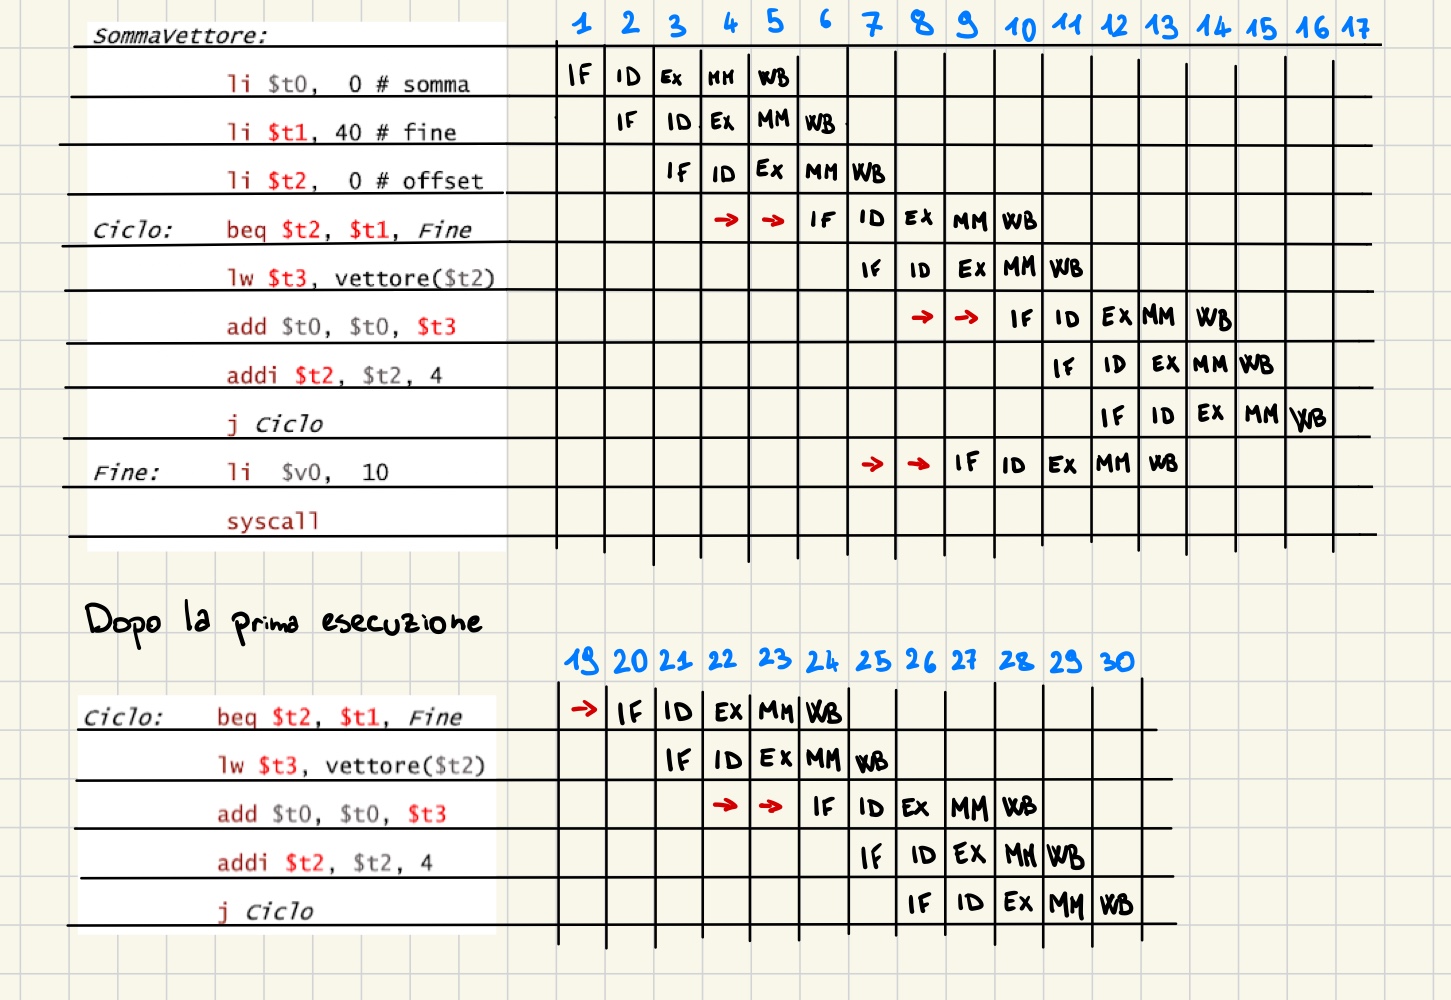 SommaVettore: 1 2 3 4 5 6 7 8 9 10 11 12 13 14 15 16 17
li $t0, 0 # somma IF ID EX MM WB
li $t1, 40 # fine IF ID EX MM WB
li $t2, 0 # offset IF ID EX MM WB
Ciclo: beq $t2, $t1, Fine → → IF ID EX MM WB
lw $t3, vettore($t2) IF ID EX MM WB
add $t0, $t0, $t3 → → IF ID EX MM WB
addi $t2, $t2, 4 IF ID EX MM WB
j Ciclo IF ID EX MM WB
Fine: li $v0, 10 → → IF ID EX MM WB
syscall
Dopo la prima esecuzione
19 20 21 22 23 24 25 26 27 28 29 30
Ciclo: beq $t2, $t1, Fine → IF ID EX MM WB
lw $t3, vettore($t2) IF ID EX MM WB
add $t0, $t0, $t3 → → IF ID EX MM WB
addi $t2, $t2, 4 IF ID EX MM WB
j Ciclo IF ID EX MM WB